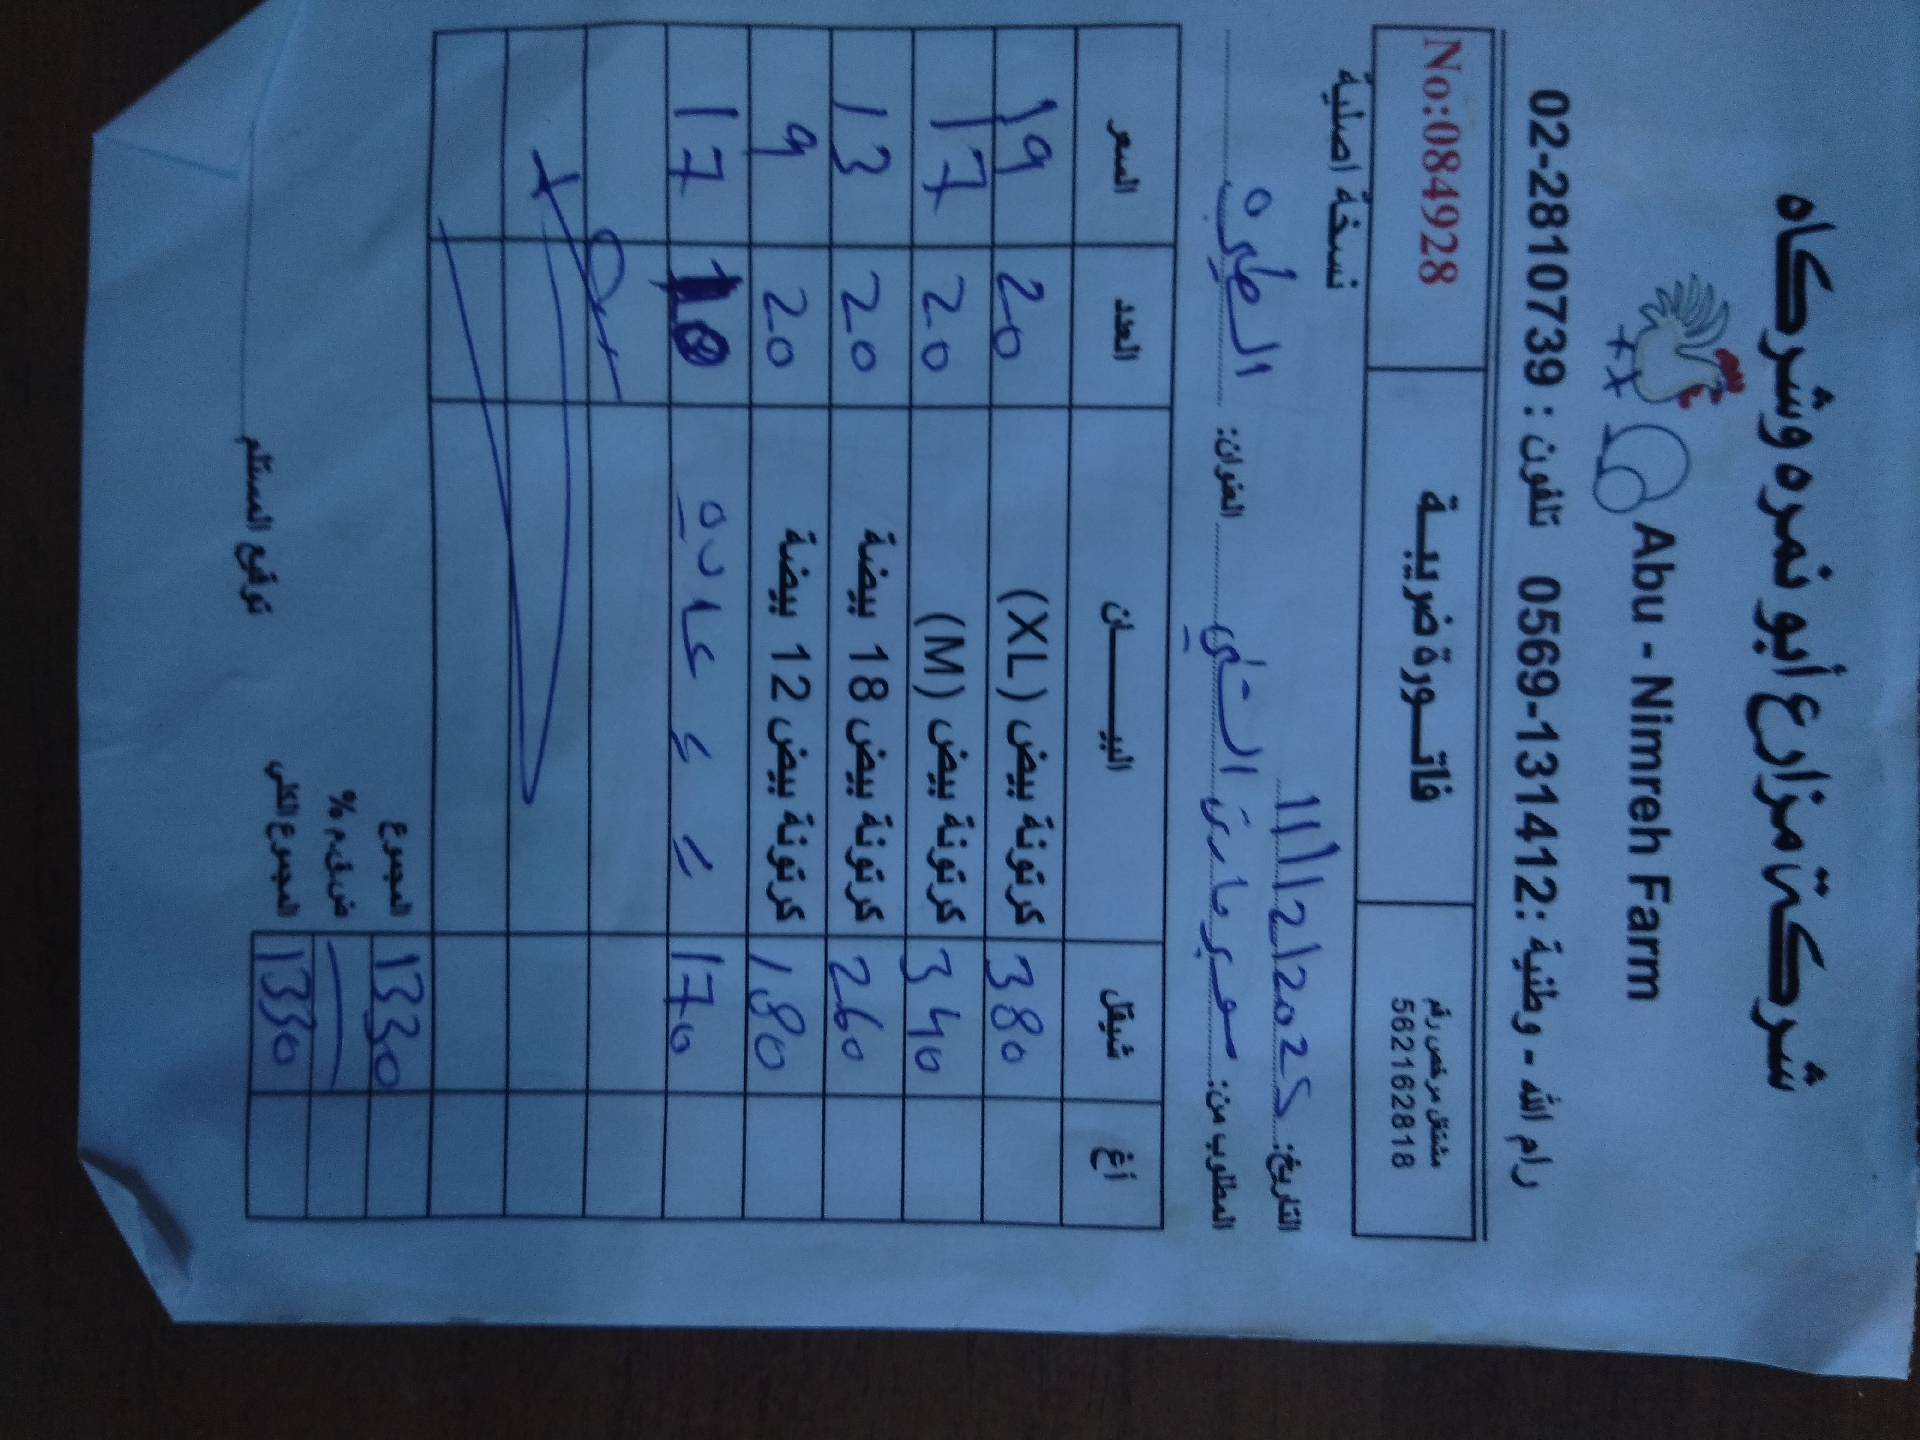 شركة مزارع أبو نمره وشركاه
Abu - Nimreh Farm
رام الله - وطنية : 0569-131412 تلفون : 02-2810739
مشتغل مرخص رقم
562162818
فاتورة ضريبية
No:084928
نسخة اصلية
التاريخ:
المطلوب من: سوبر ماركت العنوان: الطيره
أغ شيقل البيــــــان العدد السعر
380 كرتونة بيض (XL) 20 19
340 كرتونة بيض (M) 20 17
260 كرتونة بيض 18 بيضة 20 13
180 كرتونة بيض 12 بيضة 20 9
170 10 17
1330 المجموع
ض.ق.م %
1330 المجموع الكلي
توقيع المستلم